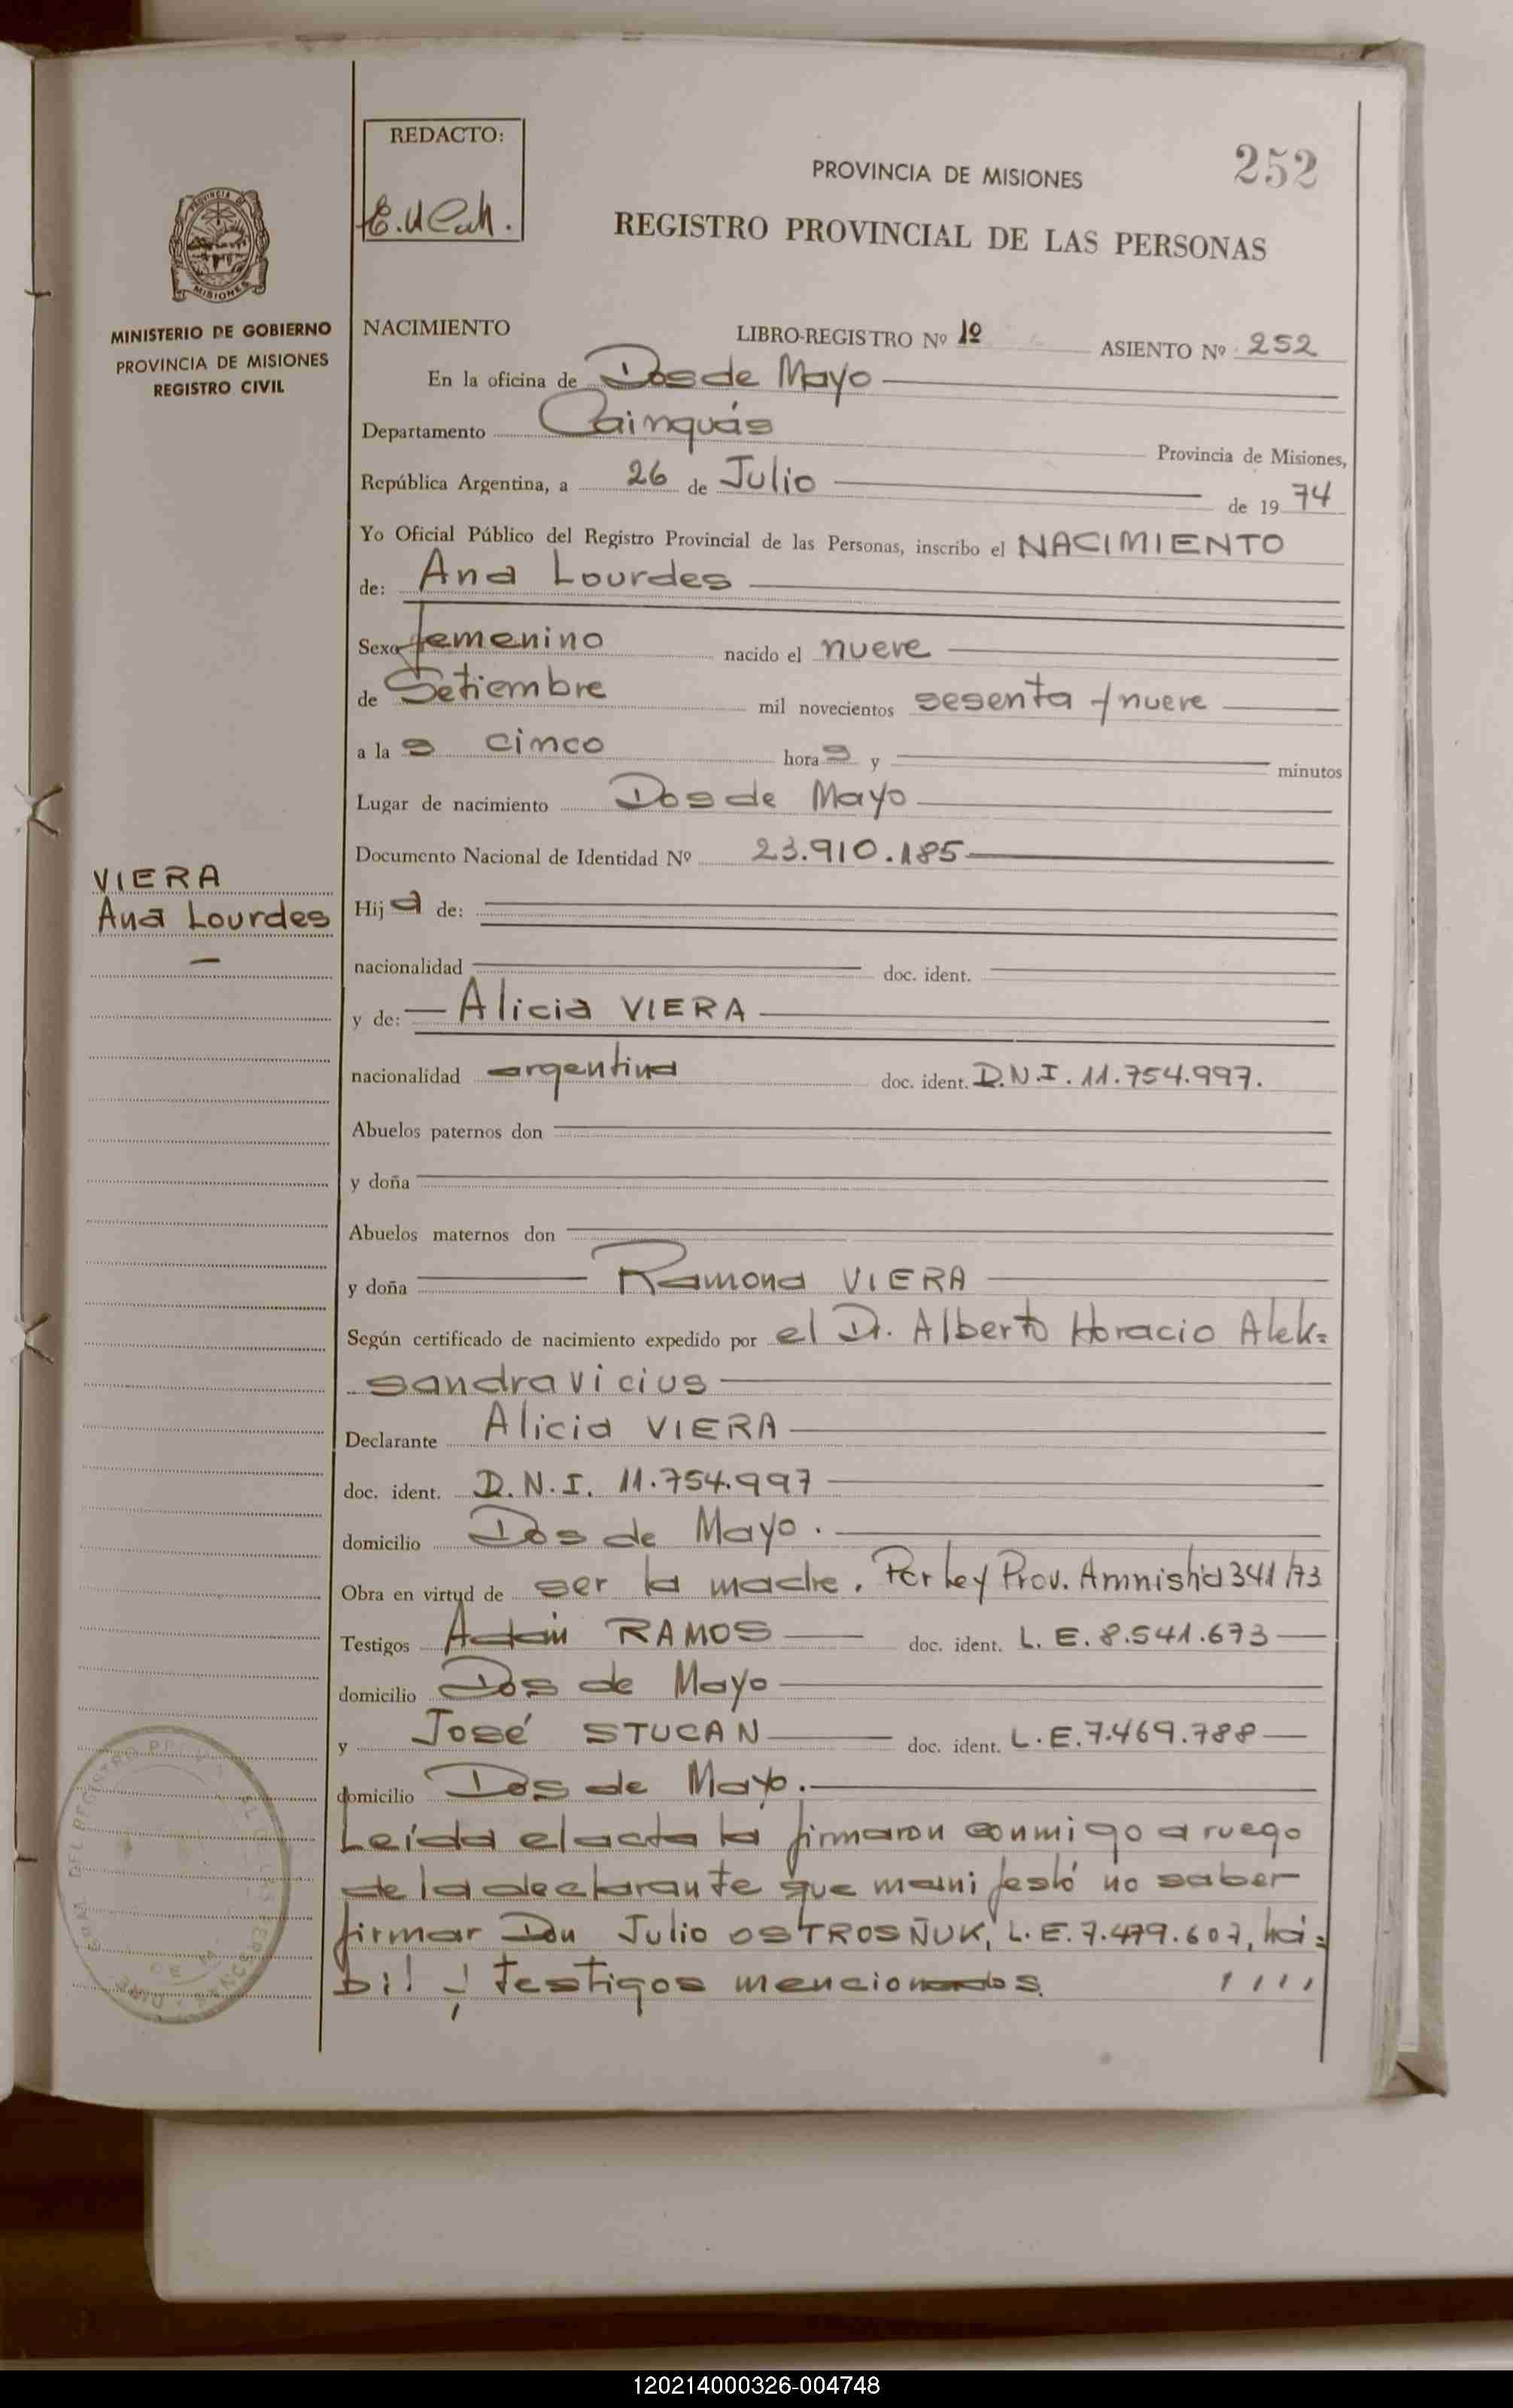 REDACTO:
252
PROVINCIA DE MISIONES
REGISTRO PROVINCIAL DE LAS PERSONAS
MISIONES
MINISTERIO DE GOBIERNO
PROVINCIA DE MISIONES
REGISTRO CIVIL
NACIMIENTO LIBRO-REGISTRO Nº 1º ASIENTO Nº 252
En la oficina de Dos de Mayo
Departamento Cainguás Provincia de Misiones,
República Argentina, a 26 de Julio de 19 74
Yo Oficial Público del Registro Provincial de las Personas, inscribo el NACIMIENTO
de: Ana Lourdes
Sexo femenino nacido el nueve
de Setiembre mil novecientos sesenta y nueve
a la s cinco hora s y minutos
Lugar de nacimiento Dos de Mayo
Documento Nacional de Identidad Nº 23.910.185
VIERA
Ana Lourdes
Hij a de:
nacionalidad doc. ident.
y de: Alicia VIERA
nacionalidad argentina doc. ident. D.N.I. 11.754.997.
Abuelos paternos don
y doña
Abuelos maternos don
y doña Ramona VIERA
Según certificado de nacimiento expedido por el Dr. Alberto Horacio Alek=
sandravicius
Declarante Alicia VIERA
doc. ident. D.N.I. 11.754.997
domicilio Dos de Mayo.
Obra en virtud de ser la madre. Por Ley Prov. Amnistía 341/73
Testigos Adán RAMOS doc. ident. L.E. 8.541.673
domicilio Dos de Mayo
y José STUCAN doc. ident. L.E. 7.469.788
domicilio Dos de Mayo.
Leída el acta la firmaron conmigo a ruego
de la declarante que manifestó no saber
firmar Don Julio OSTROSÑUK, L.E. 7.479.607, há=
bil y testigos mencionados.
120214000326-004748